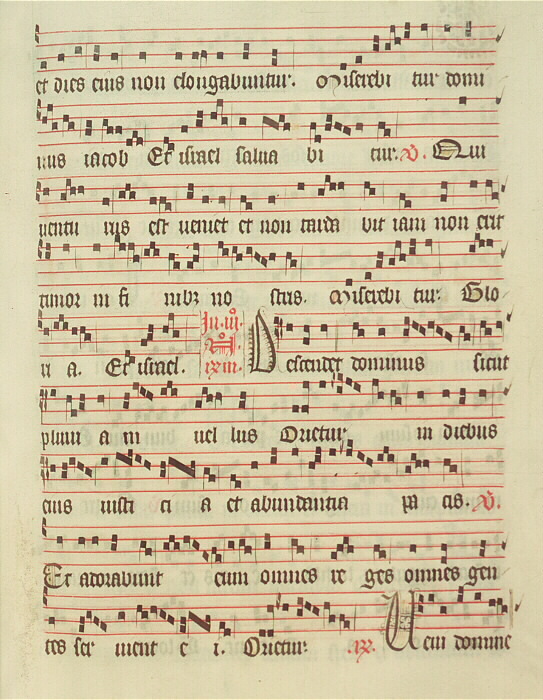 et dies eius non elongabuntur. Miserebi tur domi
nus iacob Et israel salua bi tur. V. Qui
uentu rus est ueniet et non tarda bit iam non erit
timor in fi nibz no stris. Miserebi tur. Glo
ri a. Et israel. Descendet dominus sicut
pluui a in uel lus Orietur in diebus
eius iusti ci a et abundantia pa cis. V.
Et adorabunt eum omnes re ges omnes gen
tes ser uient e i. Orietur. .ix. Ueni domine